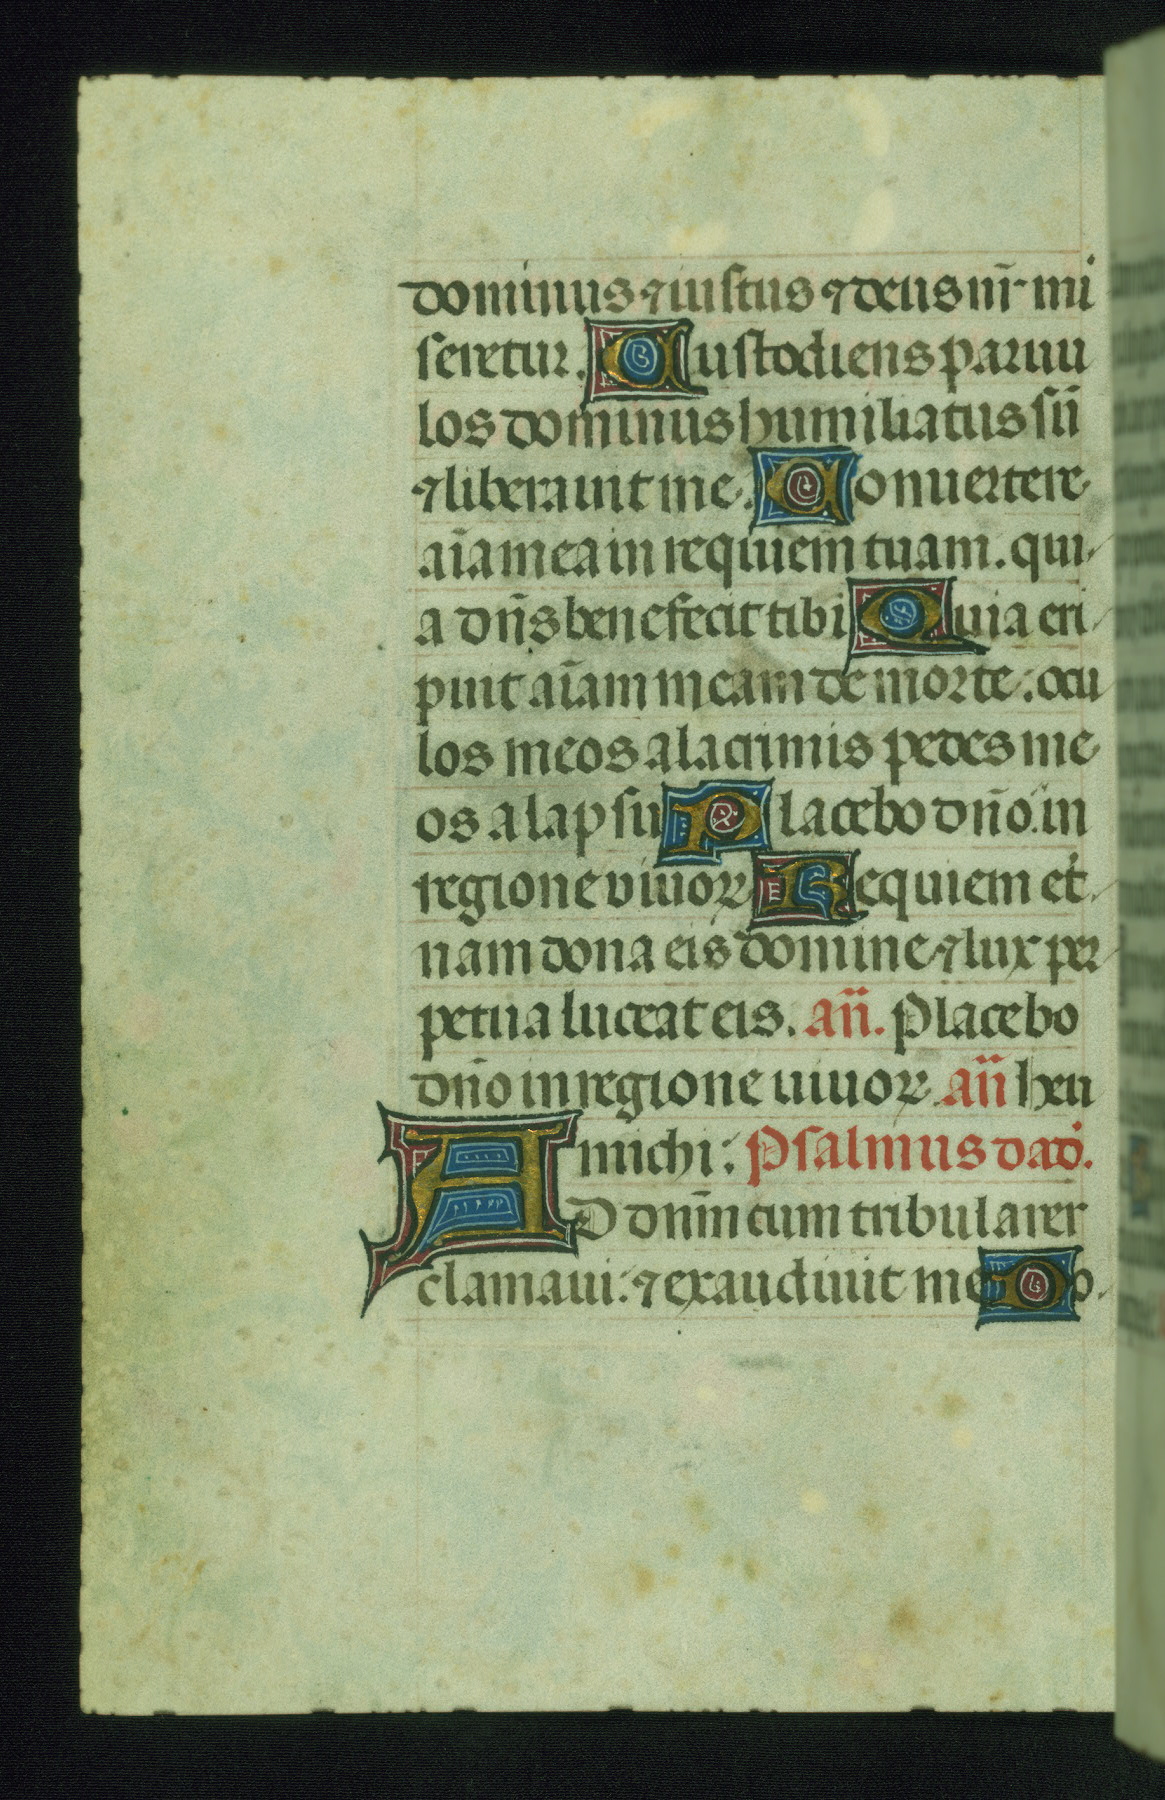 dominus ⁊ iustus ⁊ deus nr̄ mi
seretur. Custodiens paruu
los dominus humiliatus sū
⁊ liberauit me. Conuertere
aīa mea in requiem tuam. qui
a dn̄s benefecit tibi Quia eri
puit aīam meam de morte: ocu
los meos a lacrimis pedes me
os a lapsu Placebo dn̄o in
regione viuoꝝ Requiem et̾
nam dona eis domine ⁊ lux per
petua luceat eis. an̄. Placebo
dn̄o in regione uiuoꝝ an̄ heu
michi: Psalmus dad̾.
AD dn̄m cum tribularer
clamaui: ⁊ exaudiuit me Do